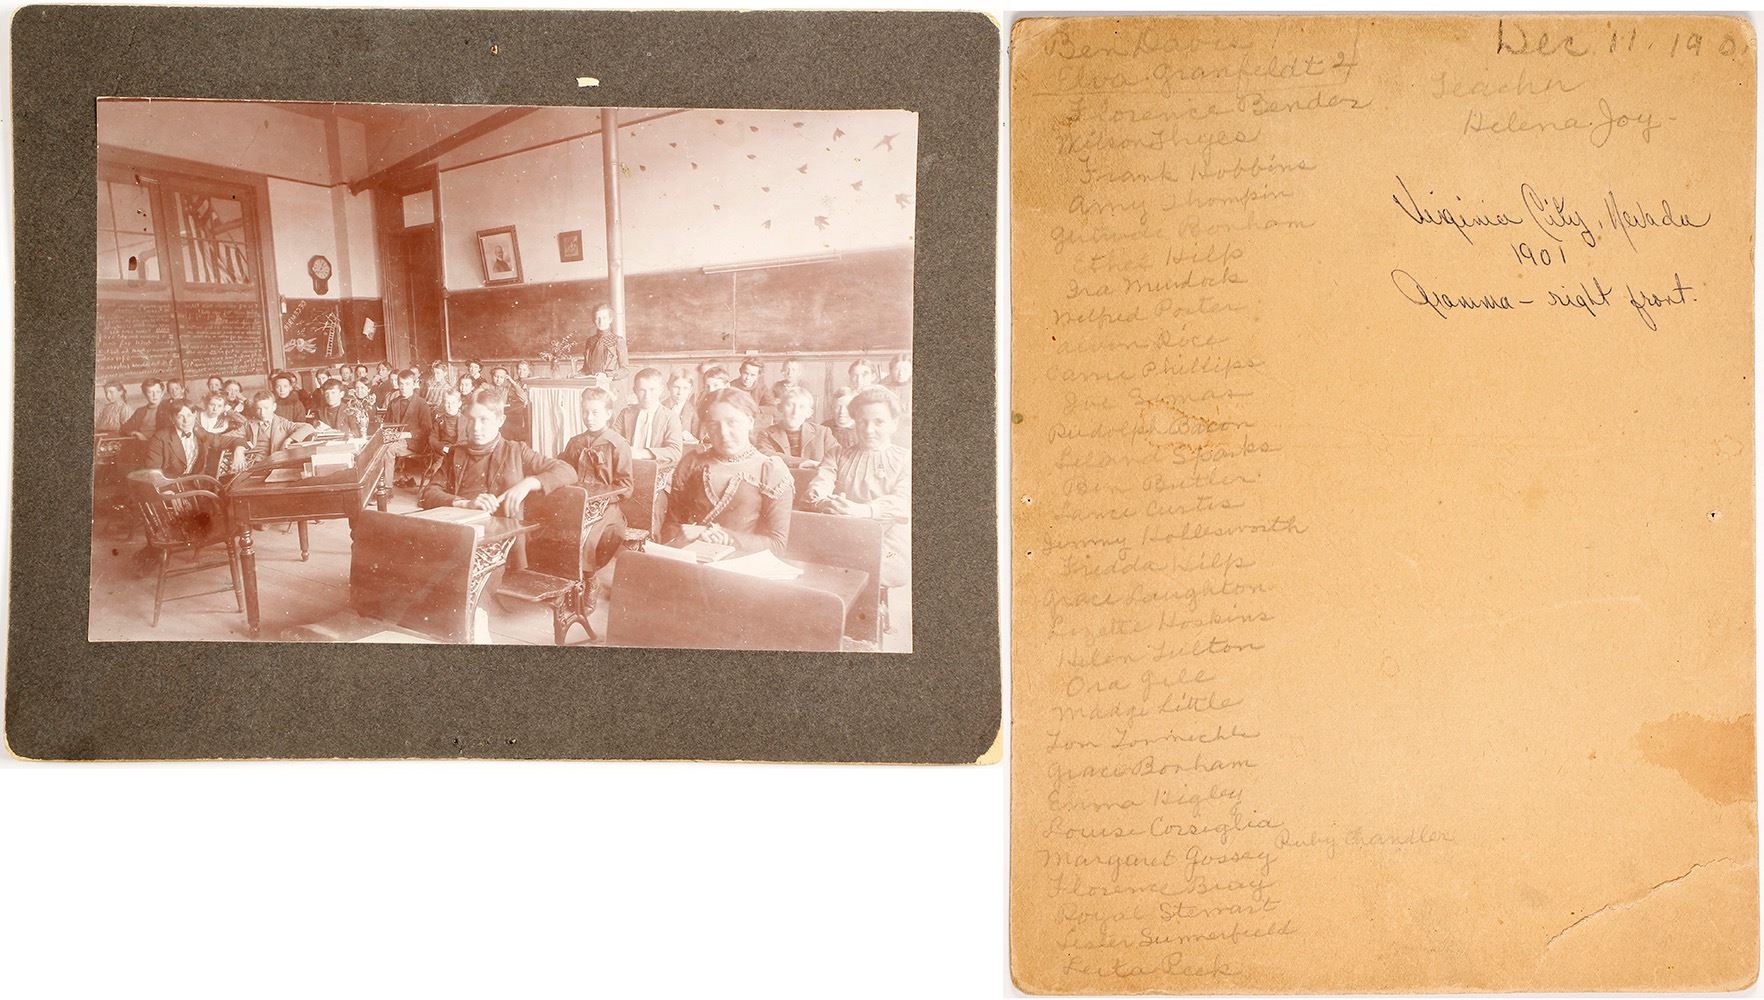 Ben Davis
Elva Granfeldt 2
Florence Bender
Wilson Thyes
Frank Hobbins
Amy Thompin
Gertrude Bonham
Ethel Hilp
Ira Murdock
Wilfred Porter
Alvin Rice
Carrie Phillips
Rudolph Bacon
Leland Sparks
Ben Butler
Lance Curtis
Jimmy Hollesworth
Fredda Hilp
Grace Laughton
Lizette Hoskins
Helen Fulton
Ora Gile
Madge Little
Tom
Grace Bonham
Emma Higley
Louise Corseglia
Margaret Gossey Ruby Chandler
Florence Bray
Royal Stewart
Lester Summerfield
Leita Peek
Dec 11. 190
Teacher
Helena Joy-
Virginia City, Nevada
1901
Gramma - right front.